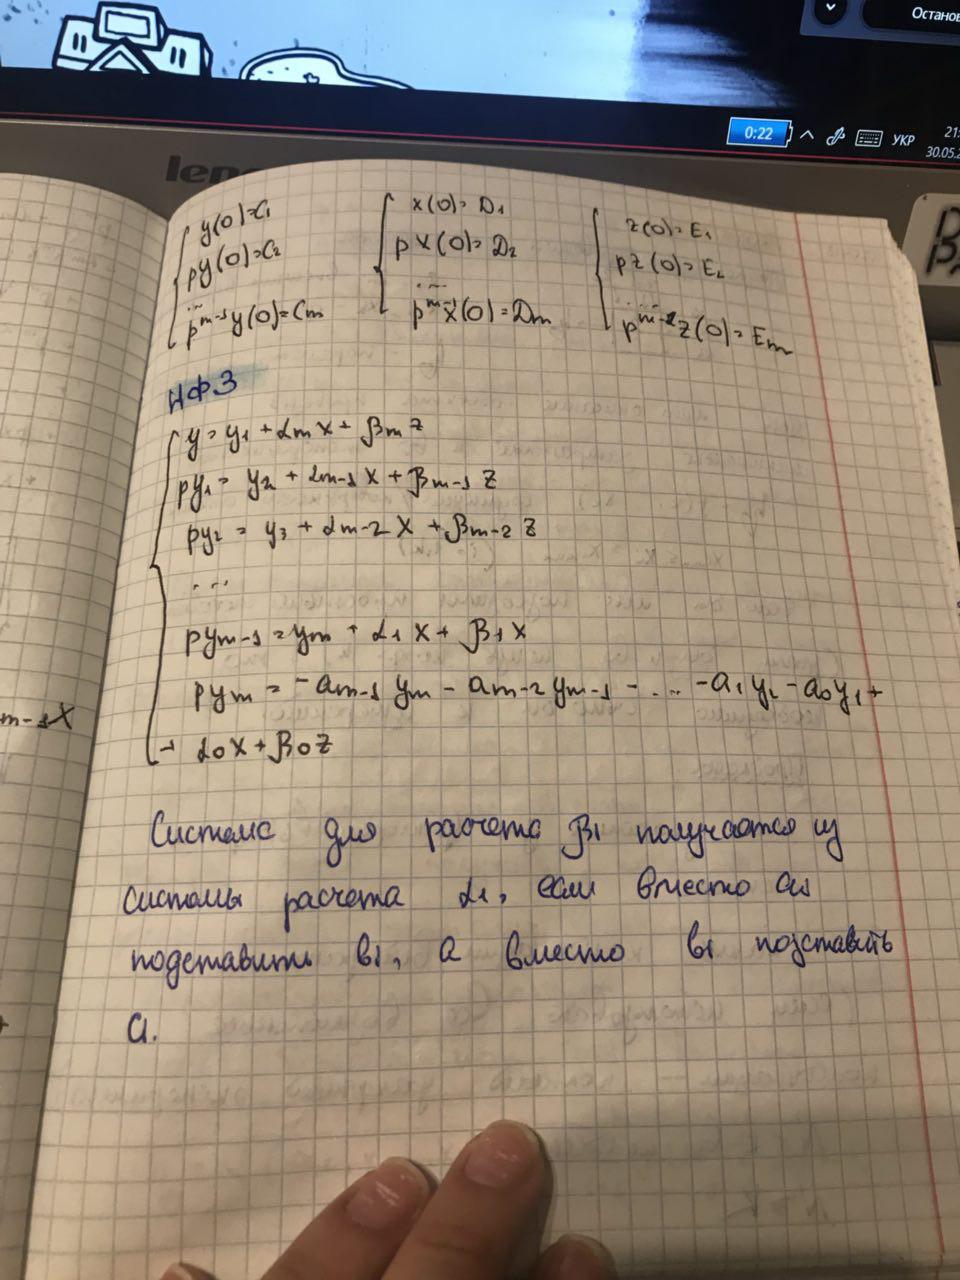 Останов
0:22
УКР
21:
30.05.2
len
y(0)=C₁
py(0)=C₂
...
pᵐ⁻¹y(0)=Cm
x(0)=D₁
px(0)=D₂
...
pᵐ⁻¹x(0)=Dm
z(0)=E₁
pz(0)=E₂
...
z(0)=Em
НФЗ
y=y₁+αm x+βm z
py₁=y₂+αm-1 x+βm-1 z
py₂=y₃+αm-2 x+βm-2 z
...
pym-1=ym+α₁x+β₁x
pym=-am-1 ym-am-2 ym-1-...-a₁y₂-a₀y₁+
+α₀x+β₀z
m-1x
Система для расчета βi получается из
системы расчета αi, если вместо
подставить вi, а вместо вi подставить
Ci.